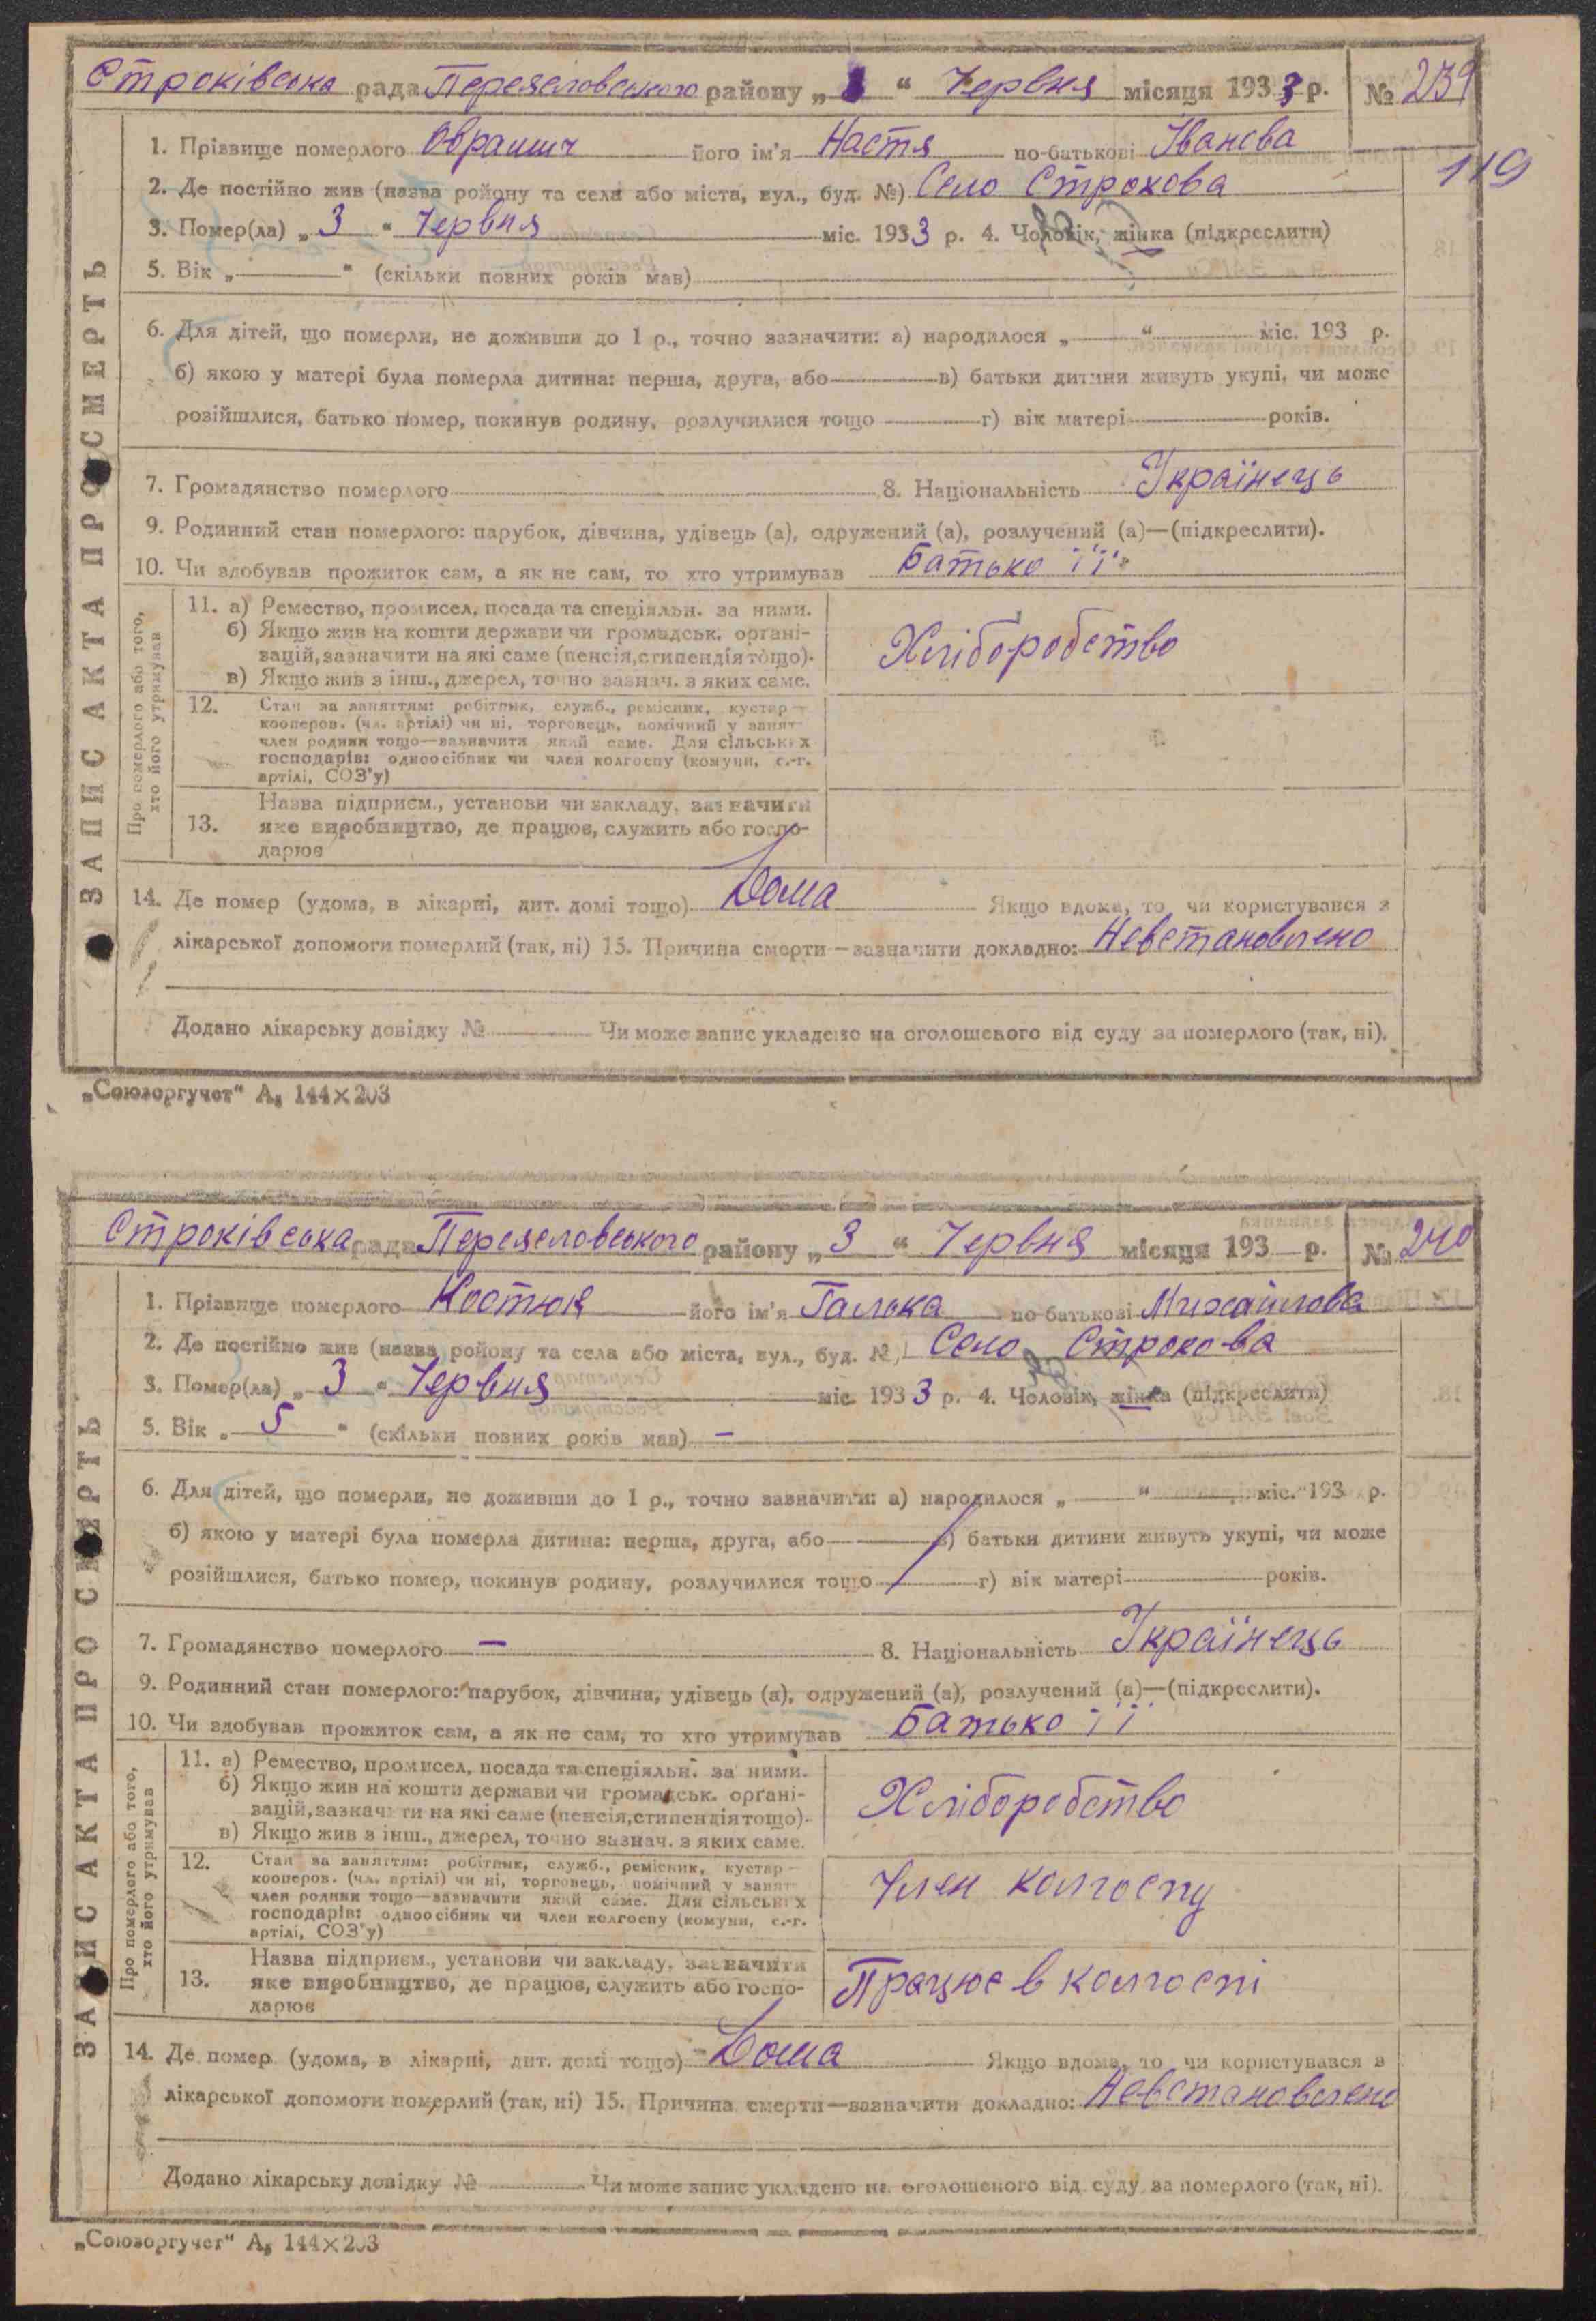 Строківська рада Переясловського району „3“ Червня місяця 1933 р. № 239
119
1. Прізвище померлого його ім'я Настя по-батькові Іванова
2. Де постійно жив (назваройону та села або міста, вул., буд. №) Село Строкова
3. Помер(ла) „3“ Червня міс. 1933 р. 4. Чоловік, жінка (підкреслити)
5. Вік „—“ (скільки повних років мав)
6. Для дітей, що померли, не доживши до 1 р., точно зазначити: а) народилося „—“ міс. 193 р.
б) якою у матері була померла дитина: перша, друга, або — в) батьки дитини живуть укупі, чи може
розійшлися, батько помер, покинув родину, розлучилися тощо — г) вік матері — років.
7. Громадянство померлого 8. Національність Українець
9. Родинний стан померлого: парубок, дівчина, удівець (а), одружений (а), розлучений (а)—(підкреслити).
10. Чи здобував прожиток сам, а як не сам, то хто утримував Батько її
ЗАПИС АКТА ПРО СМЕРТЬ
Про померлого або того, хто його утримував
11. а) Ремество, промисел, посада та спеціяльн. за ними.
б) Якщо жив на кошти держави чи громадськ. органі-
зацій, зазначити на які саме (пенсія, стипендія тощо).
в) Якщо жив з інш., джерел, точно зазнач. з яких саме.
Хліборобство
12. Стан за заняттям: робітник, служб., ремісник, кустар
кооперов. (чл. артілі) чи ні, торговець, помічний у занят
член родини тощо—зазначити який саме. Для сільських
господарів: одноосібник чи член колгоспу (комуни, с.-г.
артілі, СОЗ'у)
13. Назва підприєм., установи чи закладу, зазначити
яке виробництво, де працює, служить або госпо-
дарює
14. Де помер (удома, в лікарні, дит. домі тощо) Дома Якщо вдома, то чи користувався з
лікарської допомоги померлий (так, ні) 15. Причина смерти—зазначити докладно: Невстановлено
Додано лікарську довідку № — Чи може запис укладено на оголошеного від суду за померлого (так, ні).
„Союзоргучет“ А₅ 144×203
Строківська рада Переясловського району „3“ Червня місяця 193 р. № 240
1. Прізвище померлого Костюк його ім'я Галька по-батькові Михайлова
2. Де постійно жив (назва ройону та села або міста, вул., буд. №) Село Строкова
3. Помер(ла) „3“ Червня міс. 1933 р. 4. Чоловік, жінка (підкреслити)
5. Вік „5“ (скільки повних років мав) —
6. Для дітей, що померли, не доживши до 1 р., точно зазначити: а) народилося „—“ міс. 193 р.
б) якою у матері була померла дитина: перша, друга, або — в) батьки дитини живуть укупі, чи може
розійшлися, батько помер, покинув родину, розлучилися тощо — г) вік матері — років.
7. Громадянство померлого — 8. Національність Українець
9. Родинний стан померлого: парубок, дівчина, удівець (а), одружений (а), розлучений (а)—(підкреслити).
10. Чи здобував прожиток сам, а як не сам, то хто утримував Батько її
ЗАПИС АКТА ПРО СМЕРТЬ
Про померлого або того, хто його утримував
11. а) Ремество, промисел, посада та спеціяльн. за ними.
б) Якщо жив на кошти держави чи громадськ. органі-
зацій, зазначити на які саме (пенсія, стипендія тощо).
в) Якщо жив з інш., джерел, точно зазнач. з яких саме.
Хліборобство
12. Стан за заняттям: робітник, служб., ремісник, кустар
кооперов. (чл. артілі) чи ні, торговець, помічний у занят
член родини тощо—зазначити який саме. Для сільських
господарів: одноосібник чи член колгоспу (комуни, с.-г.
артілі, СОЗ'у)
Член колгоспу
13. Назва підприєм., установи чи закладу, зазначити
яке виробництво, де працює, служить або госпо-
дарює
Працює в колгоспі
14. Де помер (удома, в лікарні, дит. домі тощо) Дома Якщо вдома, то чи користувався з
лікарської допомоги померлий (так, ні) 15. Причина смерти—зазначити докладно: Невстановлено
Додано лікарську довідку № — Чи може запис укладено на оголошеного від суду за померлого (так, ні).
„Союзоргучет“ А₅ 144×203